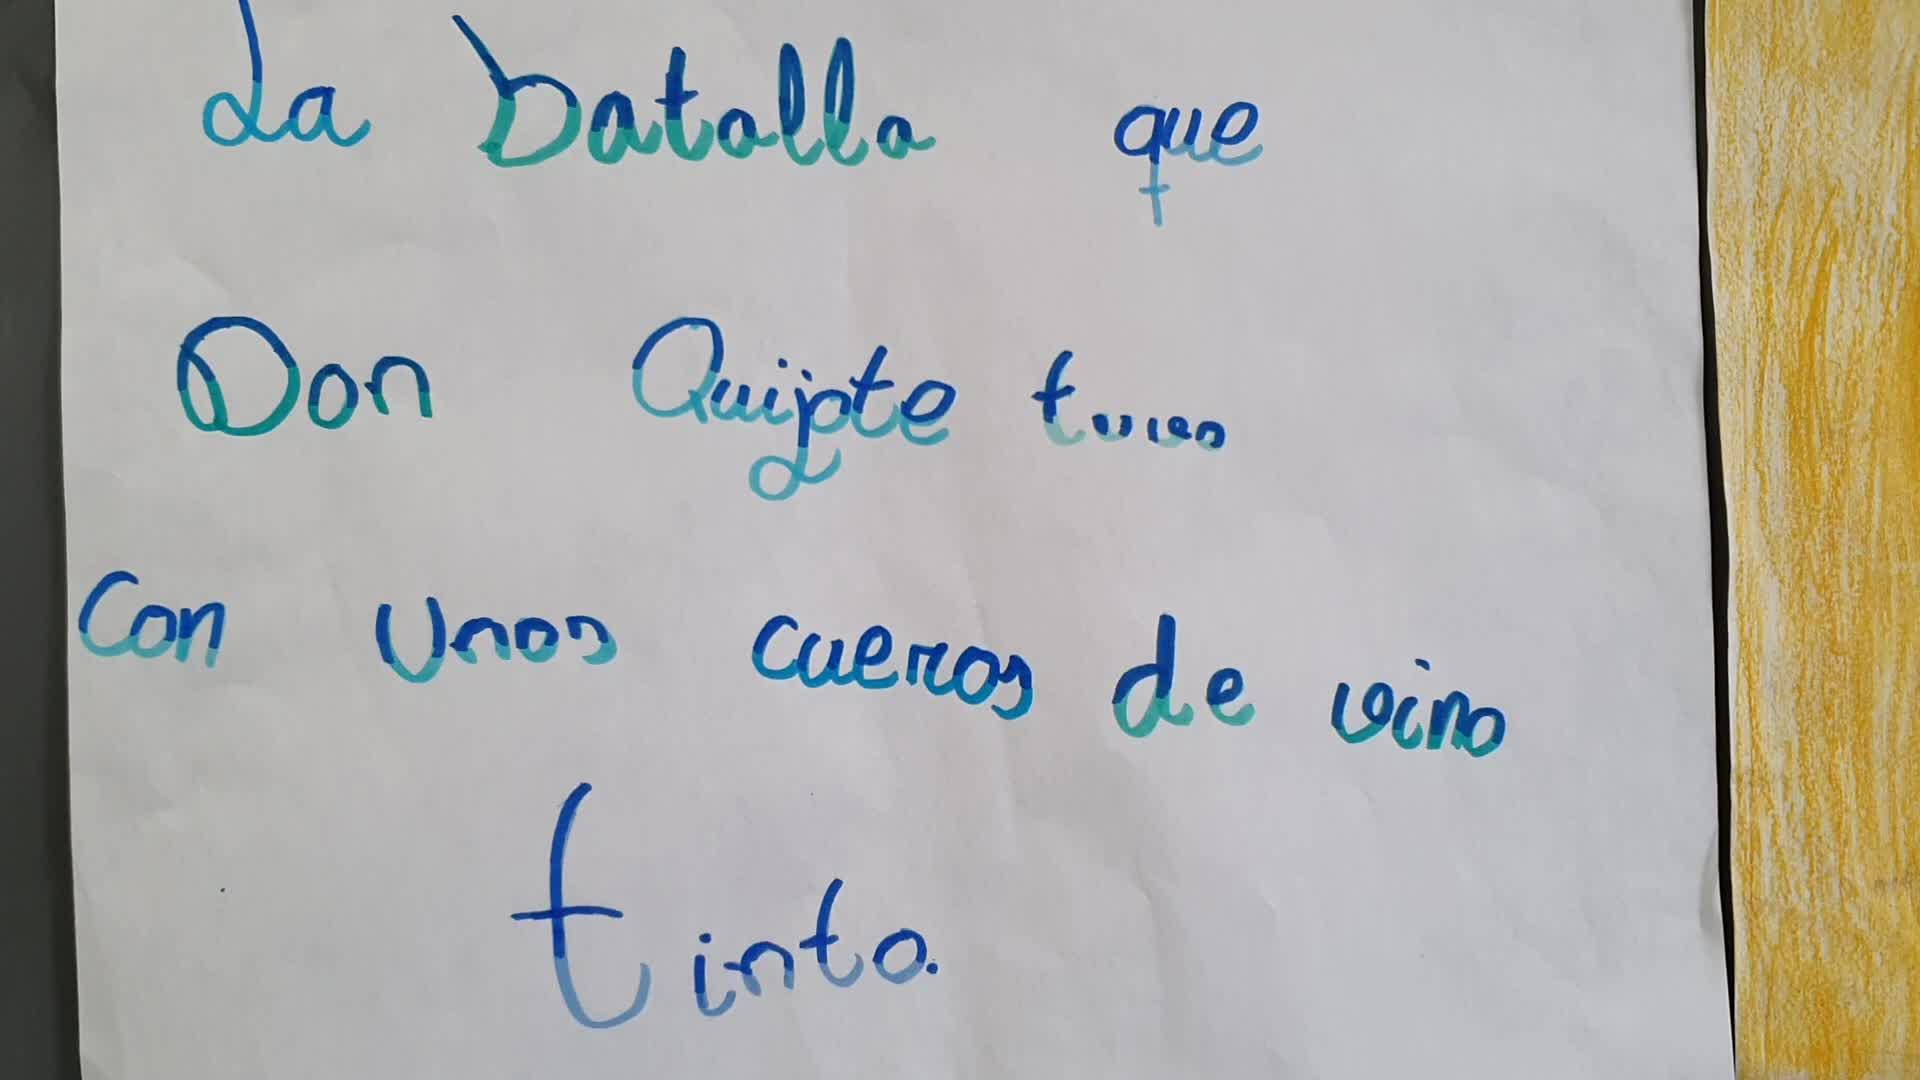 La batalla que
Don Quijote tuvo
Con Unos cueros de vino
tinto.